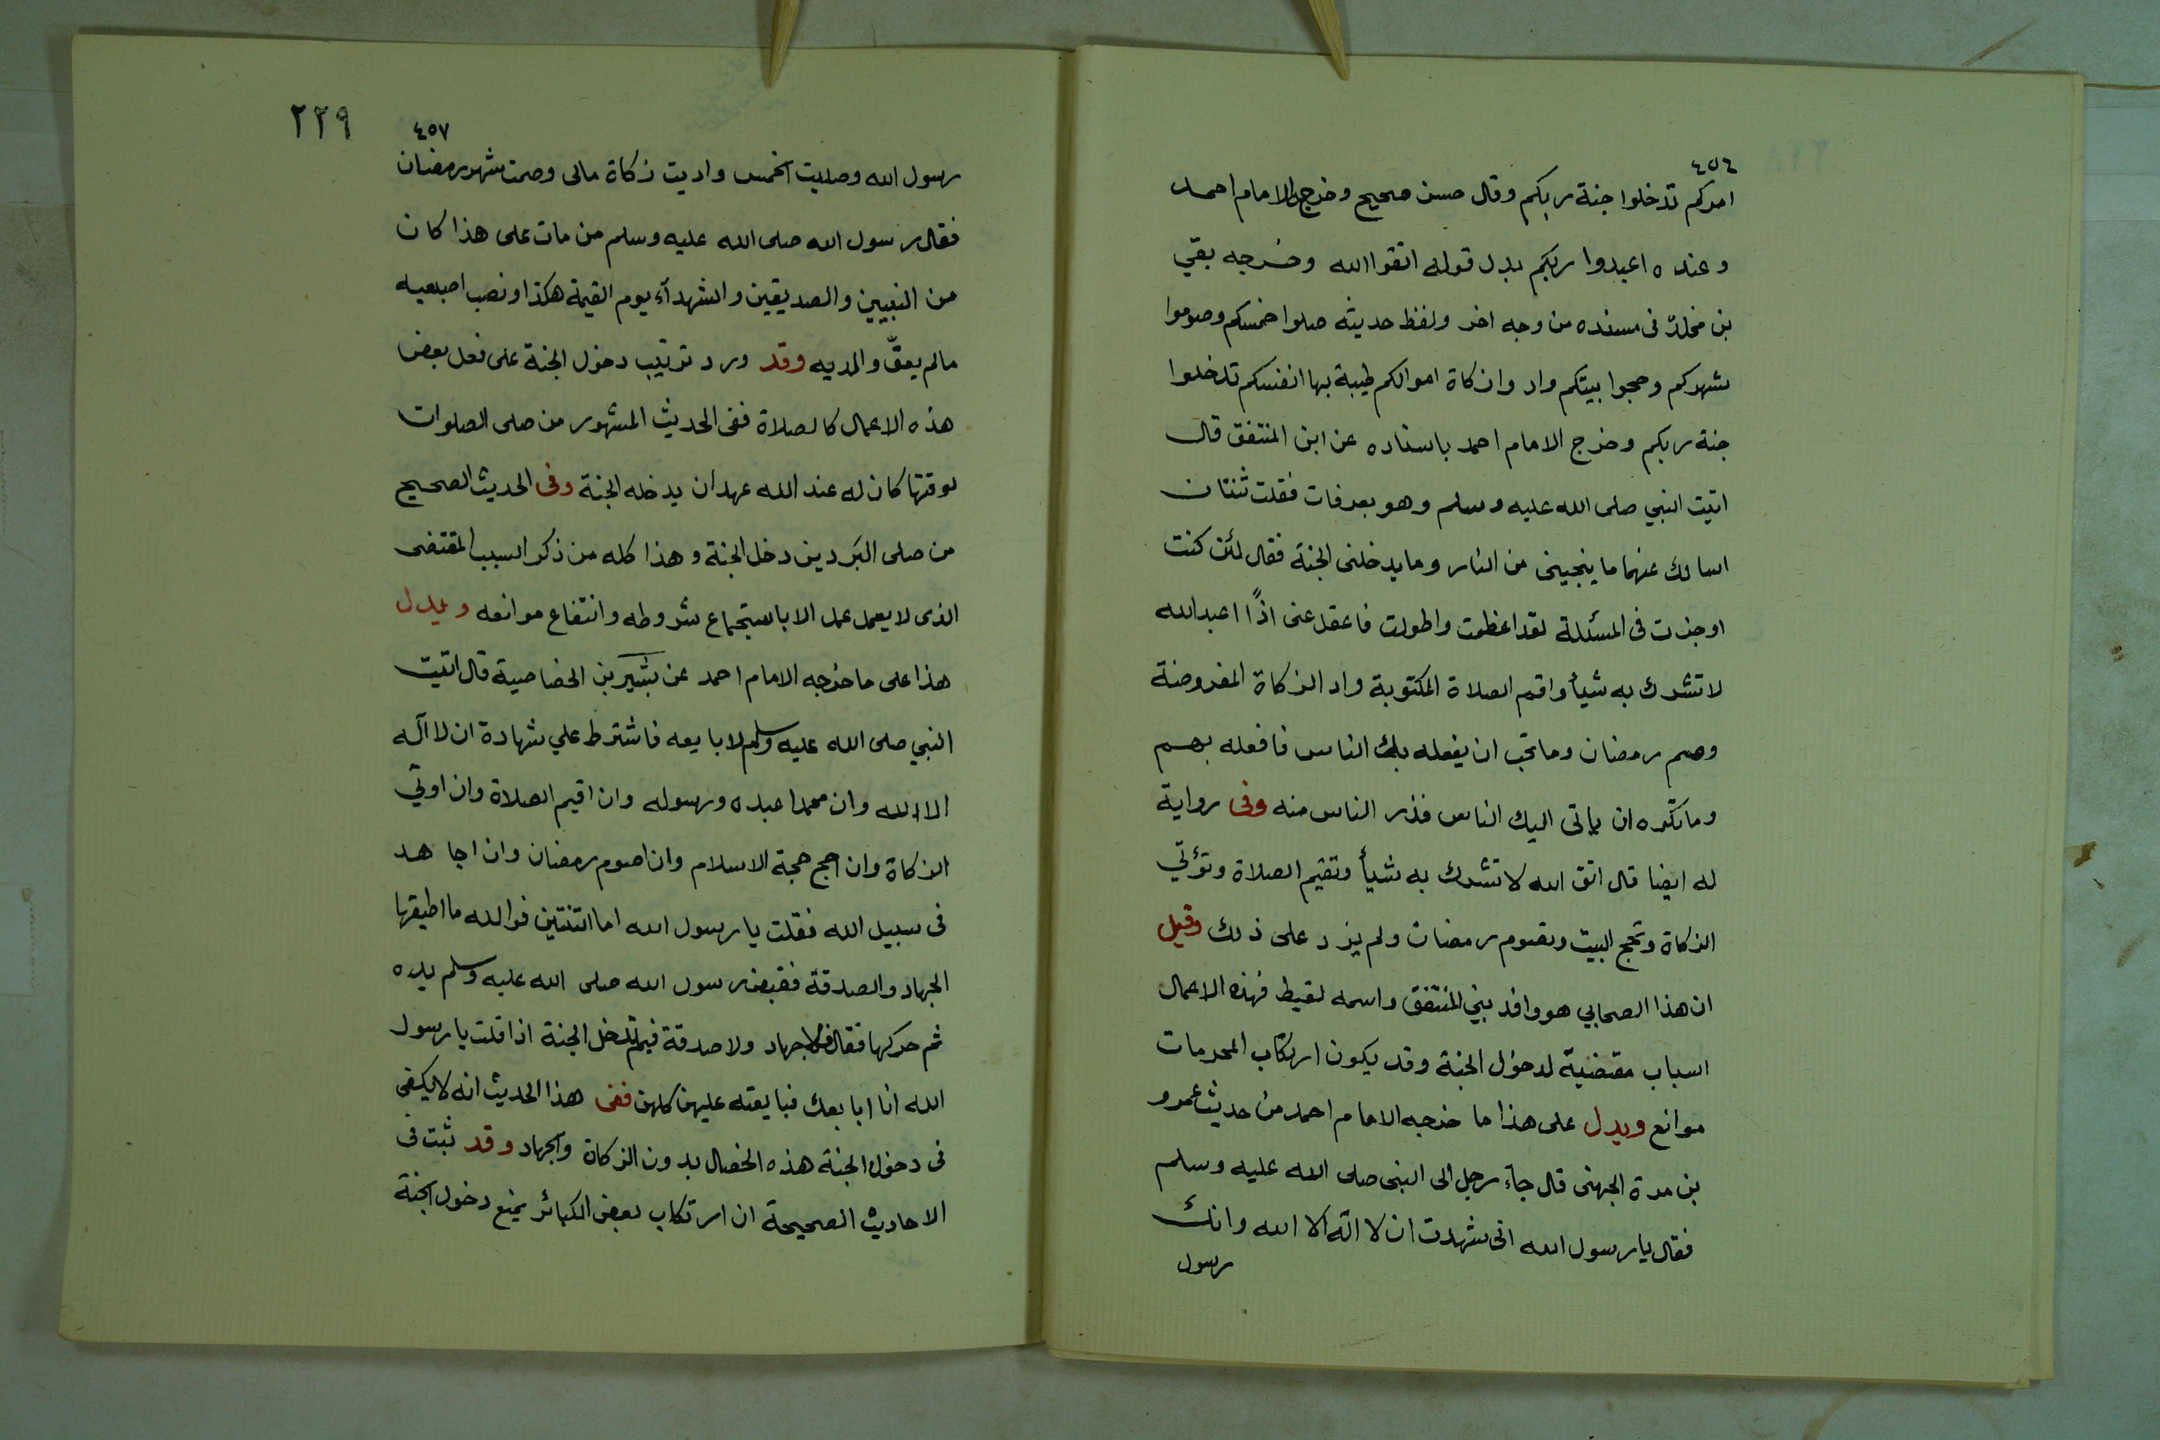 ٤٥٦
امركم تدخلوا جنة ربكم وقال حسن صحيح وخرجه الامام احمد
وعنده اعبدوا ربكم بدل قوله اتقوا الله وخرجه بقي
بن مخلد في مسنده من وجه اخر ولفظ حديثه صلوا خمسكم وصوموا
شهركم وحجوا بيتكم وادوا زكاة اموالكم طيبة بها انفسكم تدخلوا
جنة ربكم وخرج الامام احمد باسناده عن ابن المنتفق قال
اتيت النبي صلى الله عليه وسلم وهو بعرفات فقلت ثنتان
اسالك عنهما ما ينجيني من النار وما يدخلني الجنة فقال لئن كنت
اوجزت في المسئلة لقد اعظمت واطولت فاعقل عني اذًا اعبد الله
لا تشرك به شيأ واقم الصلاة المكتوبة واد الزكاة المفروضة
وصم رمضان وما تحب ان يفعله بك الناس فافعله بهم
وما تكره ان ياتى اليك الناس فذر الناس منه وفى رواية
له ايضا قال اتق الله لا تشرك به شيأ وتقيم الصلاة وتؤتي
الزكاة وتحج البيت وتصوم رمضان ولم يزد على ذلك وقيل
ان هذا الصحابي هو وافد بني المنتفق واسمه لقيط فهذه الاعمال
اسباب مقتضية لدخول الجنة وقد يكون ارتكاب المحرمات
موانع ويدل على هذا ما خرجه الامام احمد من حديث عمرو
بن مرة الجهنى قال جآء رجل الى النبى صلى الله عليه وسلم
فقال يا رسول الله انى شهدت ان لا اله الا الله وانك
رسول
٢٢٩
٤٥٧
رسول الله وصليت الخمس واديت زكاة مالى وصمت شهر رمضان
فقال رسول الله صلى الله عليه وسلم من مات على هذا كان
من النبيين والصديقين والشهدآء يوم القيمة هكذا ونصب اصبعيه
مالم يعقّ والديه وقد ورد ترتيب دخول الجنة على فعل بعض
هذه الاعمال كالصلاة ففى الحديث المشهور من صلى الصلوات
لوقتها كان له عند الله عهد ان يدخله الجنة وفى الحديث الصحيح
من صلى البَردين دخل الجنة وهذا كله من ذكر السبب المقتضى
الذى لا يعمل عمل الا باستجماع شروطه وانتفاع موانعه ويدل
هذا على ما خرجه الامام احمد عن بشير بن الخصاصية قال اتيت
النبي صلى الله عليه وسلم لابايعه فاشترط علي شهادة ان لا اله
الا الله وان محمدا عبده ورسوله وان اقيم الصلاة وان اوتي
الزكاة وان احج حجة الاسلام وان اصوم رمضان وان اجاهد
فى سبيل الله فقلت يا رسول الله اما اثنتين فوالله ما اطيقها
الجهاد والصدقة فقبض رسول الله صلى الله عليه وسلم يده
ثم حركها فقال فلاجهاد ولا صدقة فبم تدخل الجنة اذا قلت يا رسول
الله انا ابايعك فبايعته عليهن كلهن ففى هذا الحديث انه لا يكفى
فى دخول الجنة هذه الخصال بدون الزكاة والجهاد وقد ثبت فى
الاحاديث الصحيحة ان ارتكاب بعض الكبائر يمنع دخول الجنة